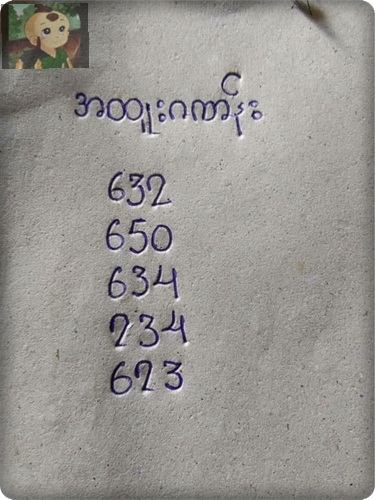 အထူးဂဏန်း
632
650
634
234
623